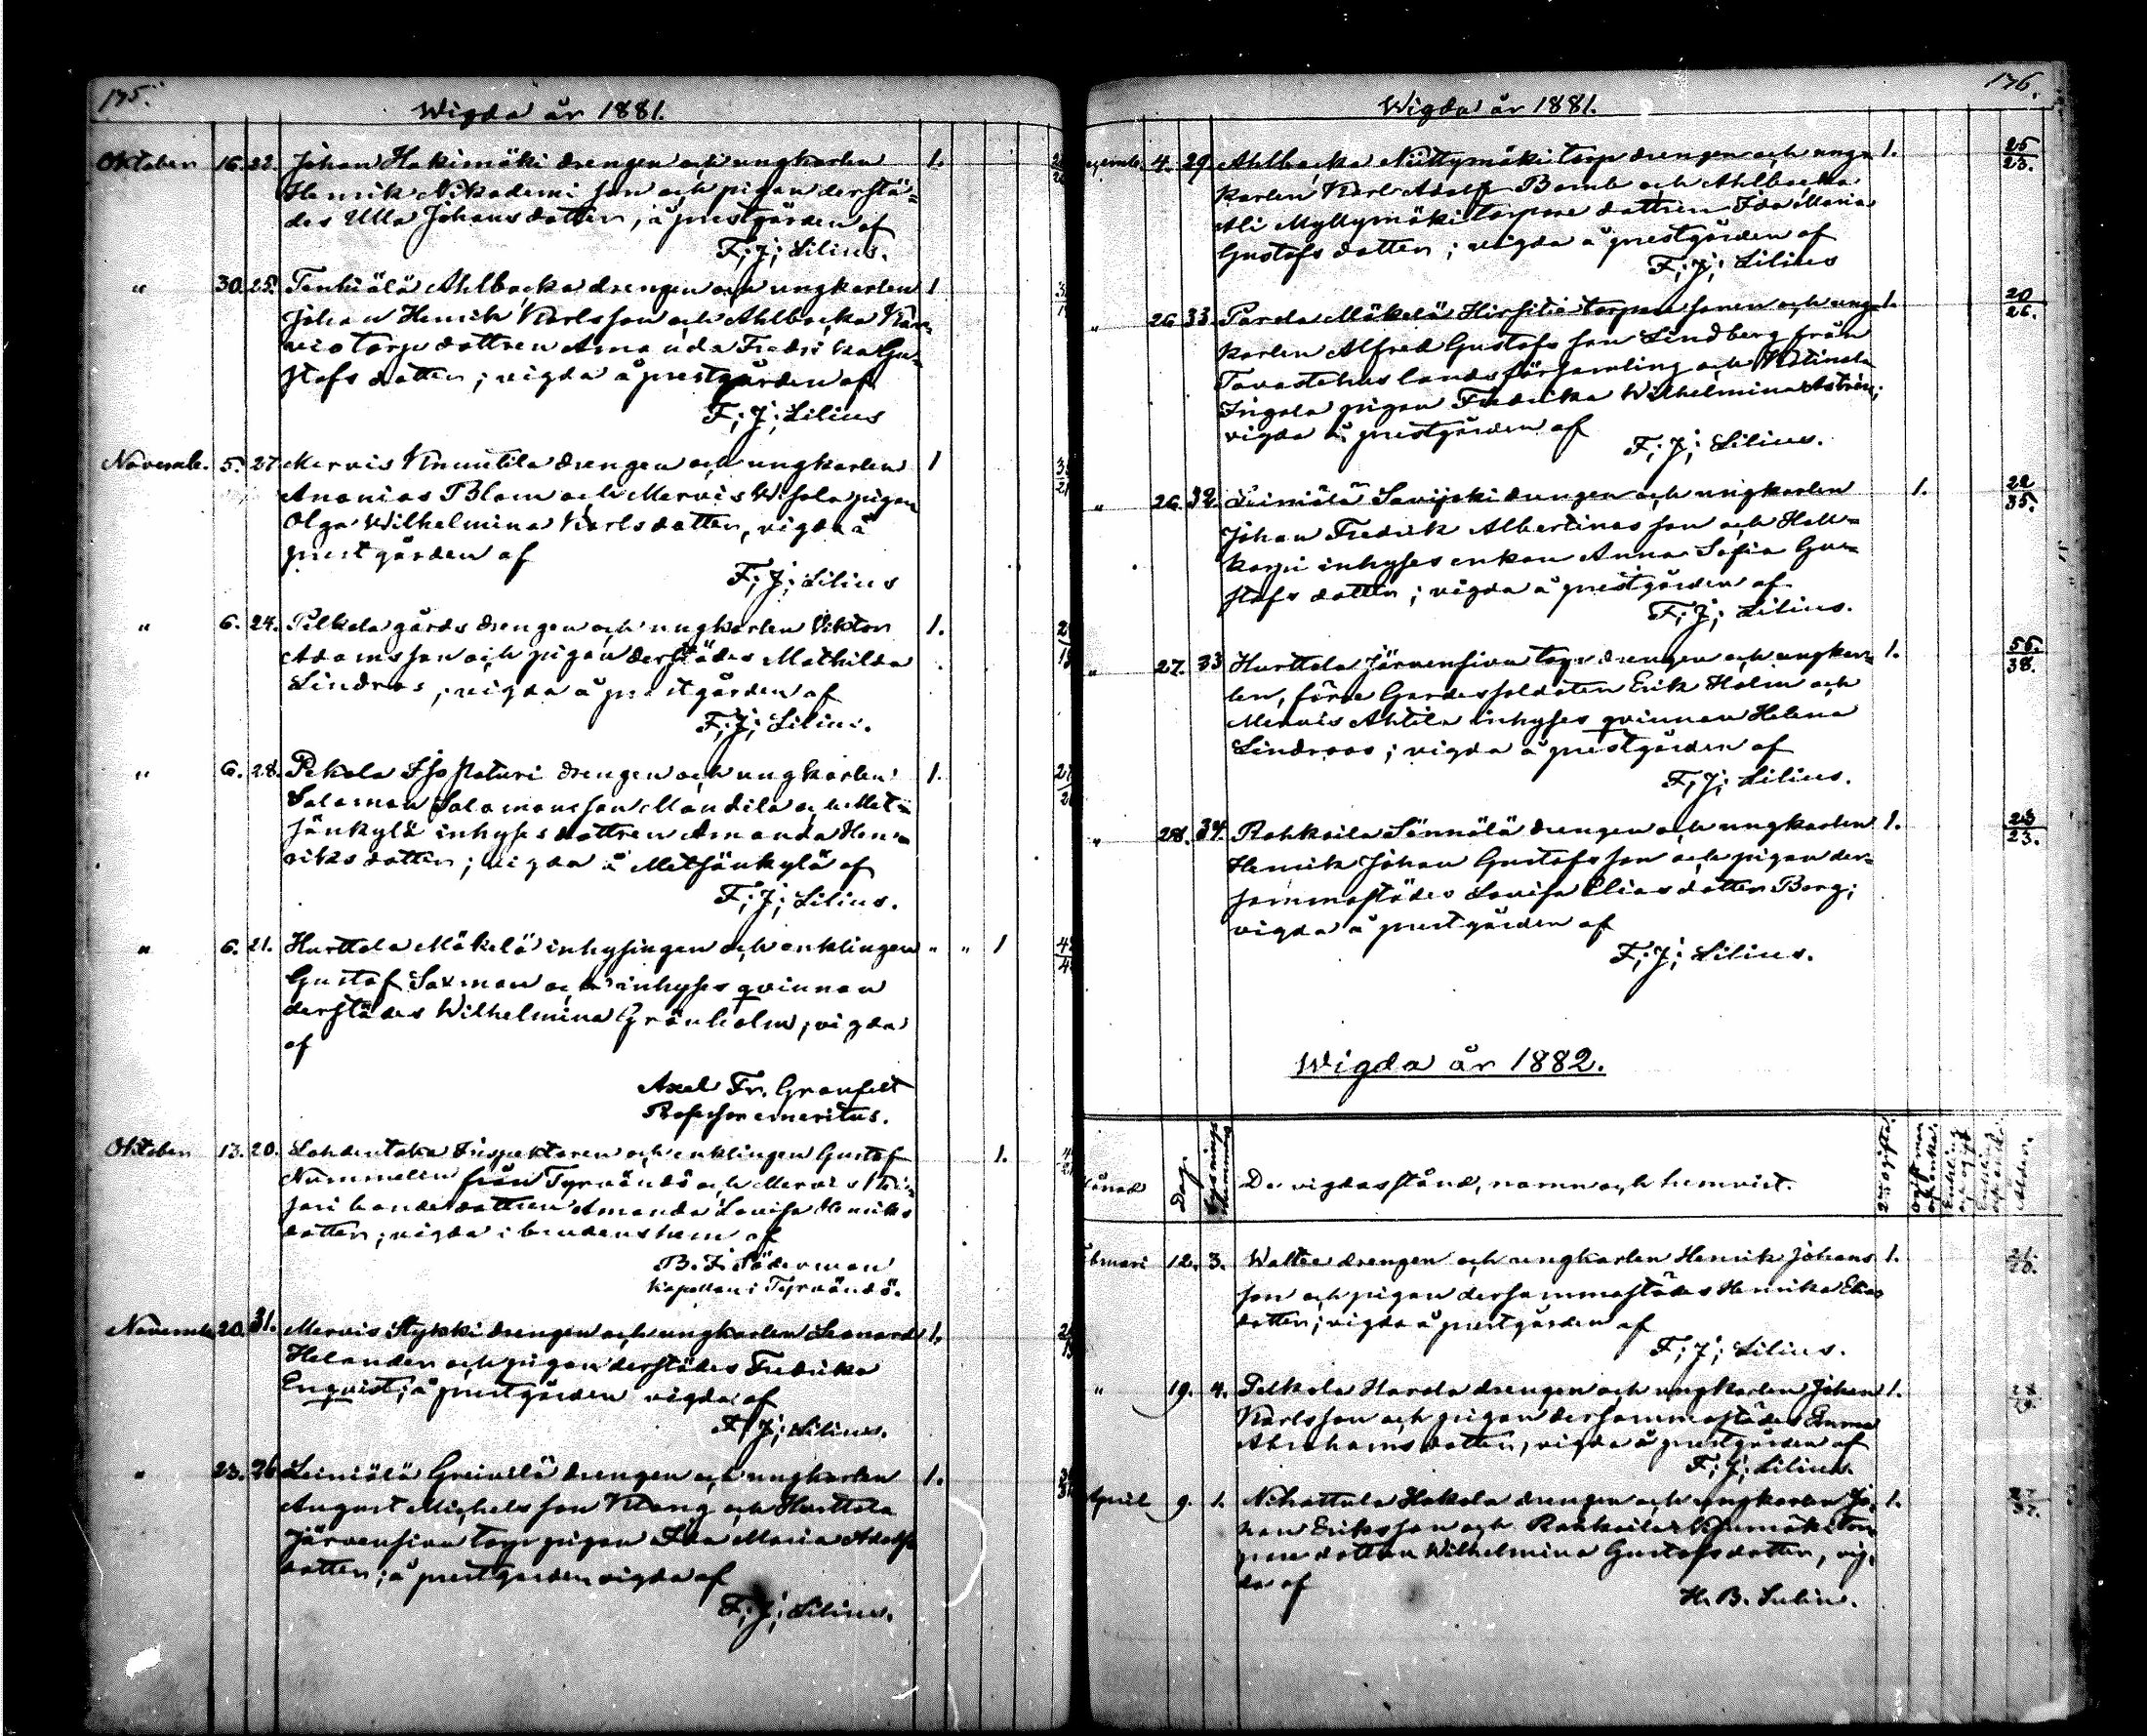 175.
Wigda år 1881.
Oktober 16. 22. Johan Hakimäki drengen och ungkarlen 1.
Henrik Nikodemi son och pigan derstä=
des Ulla Johansdotter, å prestgården af
F; J; Lilius.
" 30. 25. Ahlbacka drengen och ungkarlen 1
Johan Henrik Karlsson och Ahlbacka
torp dottren Amanda Fredrika Gu=
stafs dotter; vigda å prestgården af
F; J; Lilius
Novemb. 5. 27. Mervis Knuutila drengen och ungkarlen 1
Ananias Blom och Mervis pigan
Olga Wilhelmina Karlsdotter, vigda å
prestgården af
F; J; Lilius
" 6. 24. Pelkola gårds drengen och ungkarlen Viktor 1.
Adamsson och pigan derstädes Mathilda
Lindroos, vigda å prestgården af
F; J; Lilius.
" 6. 28. Pekola drengen och ungkarlen 1.
Salomon Salomonsson Mandila och Met=
sänkylä inhyses dottren Amanda Hen=
riksdotter; vigda å Metsänkylä af
F; J; Lilius.
" 6. 21. Hurttala Mäkelä inhysingen och enklingen " " 1
Gustaf Saxman och inhyses qvinnan
derstädes Wilhelmina Grönholm; vigda
af
Axel Fr. Granfelt
Professor emeritus.
Oktober 13. 20. Inspektoren och enklingen Gustaf 1.
Nummelin från Tyrvändö och Mervis
bondedottren Amanda Lovisa Henriks
dotter; vigda i brudens hem af
B. F. Söderman
Kapellan i Tyrvändö.
November 20. 31. Mervis Stykki drengen och ungkarlen Leonard 1.
Helander och pigan derstädes Fredrika
Enqvist; å prestgården vigda af
F; J; Lilius.
" 23. 26. Leiniälä drengen och ungkarlen 1.
August Michelsson Klang och Hurttala
Järvensivu torp pigan Eva Maria Adolfs
dotter; å prestgården vigda af
F; J; Lilius.
176.
Wigda år 1881.
4. 29. Ahlbacka Niittymäki torp drengen och ung= 1. 25/23.
karlen Karl Adolf Bomb och Ahlbacka
Ali Myllymäki torpare dottren Ida Maria
Gustafs dotter; vigda å prestgården af
F; J; Lilius
" 26. 33. Parola Mäkelä torpare sonen och ung= 1. 20/26.
karlen Alfred Gustafs son Lindberg från
Tavastehus landsförsamling och
pigan Fredrika Wilhelmina
vigda å prestgården af
F; J; Lilius.
" 26. 32. Leiniälä Savijoki drengen och ungkarlen 1. 22/35.
Johan Fredrik Albertinas son och
inhyses enkan Anna Sofia Gu=
stafs dotter; vigda å prestgården af
F; J; Lilius.
" 27. 33 Hurttala Järvensivu torp drengen och ungkar= 1. 56./38.
len, förre Gardessoldaten Erik Holm och
Mervis Ahtila inhyses qvinnan Helena
Lindroos; vigda å prestgården af
F; J; Lilius.
" 28. 34. Rahkoila Sännälä drengen och ungkarlen 1. 23/23.
Henrik Johan Gustafsson och pigan der=
sammastädes Lovisa Eliasdotter Borg;
vigda å prestgården af
F; J; Lilius.
Wigda år 1882.
Dag. De vigdas stånd, namn och hemvist. Ålder.
12. 3. Waltee drengen och ungkarlen Henrik Johans 1.
son och pigan dersammastädes Henrika Elias
dotter; vigda å prestgården af
F; J; Lilius.
" 19. 4. Pelkola Harola drengen och ungkarlen Johan 1.
Karlsson och pigan dersammastädes Emma
Abrahamsdotter, vigda å prestgården af
F; J; Lilius.
April 9. 1. Nihattula Hakola drengen och ungkarlen Jo= 1.
han Eriksson och Rahkoila tor=
pare dottren Wilhelmina Gustafsdotter, vig=
da af
H. B. Sulin.